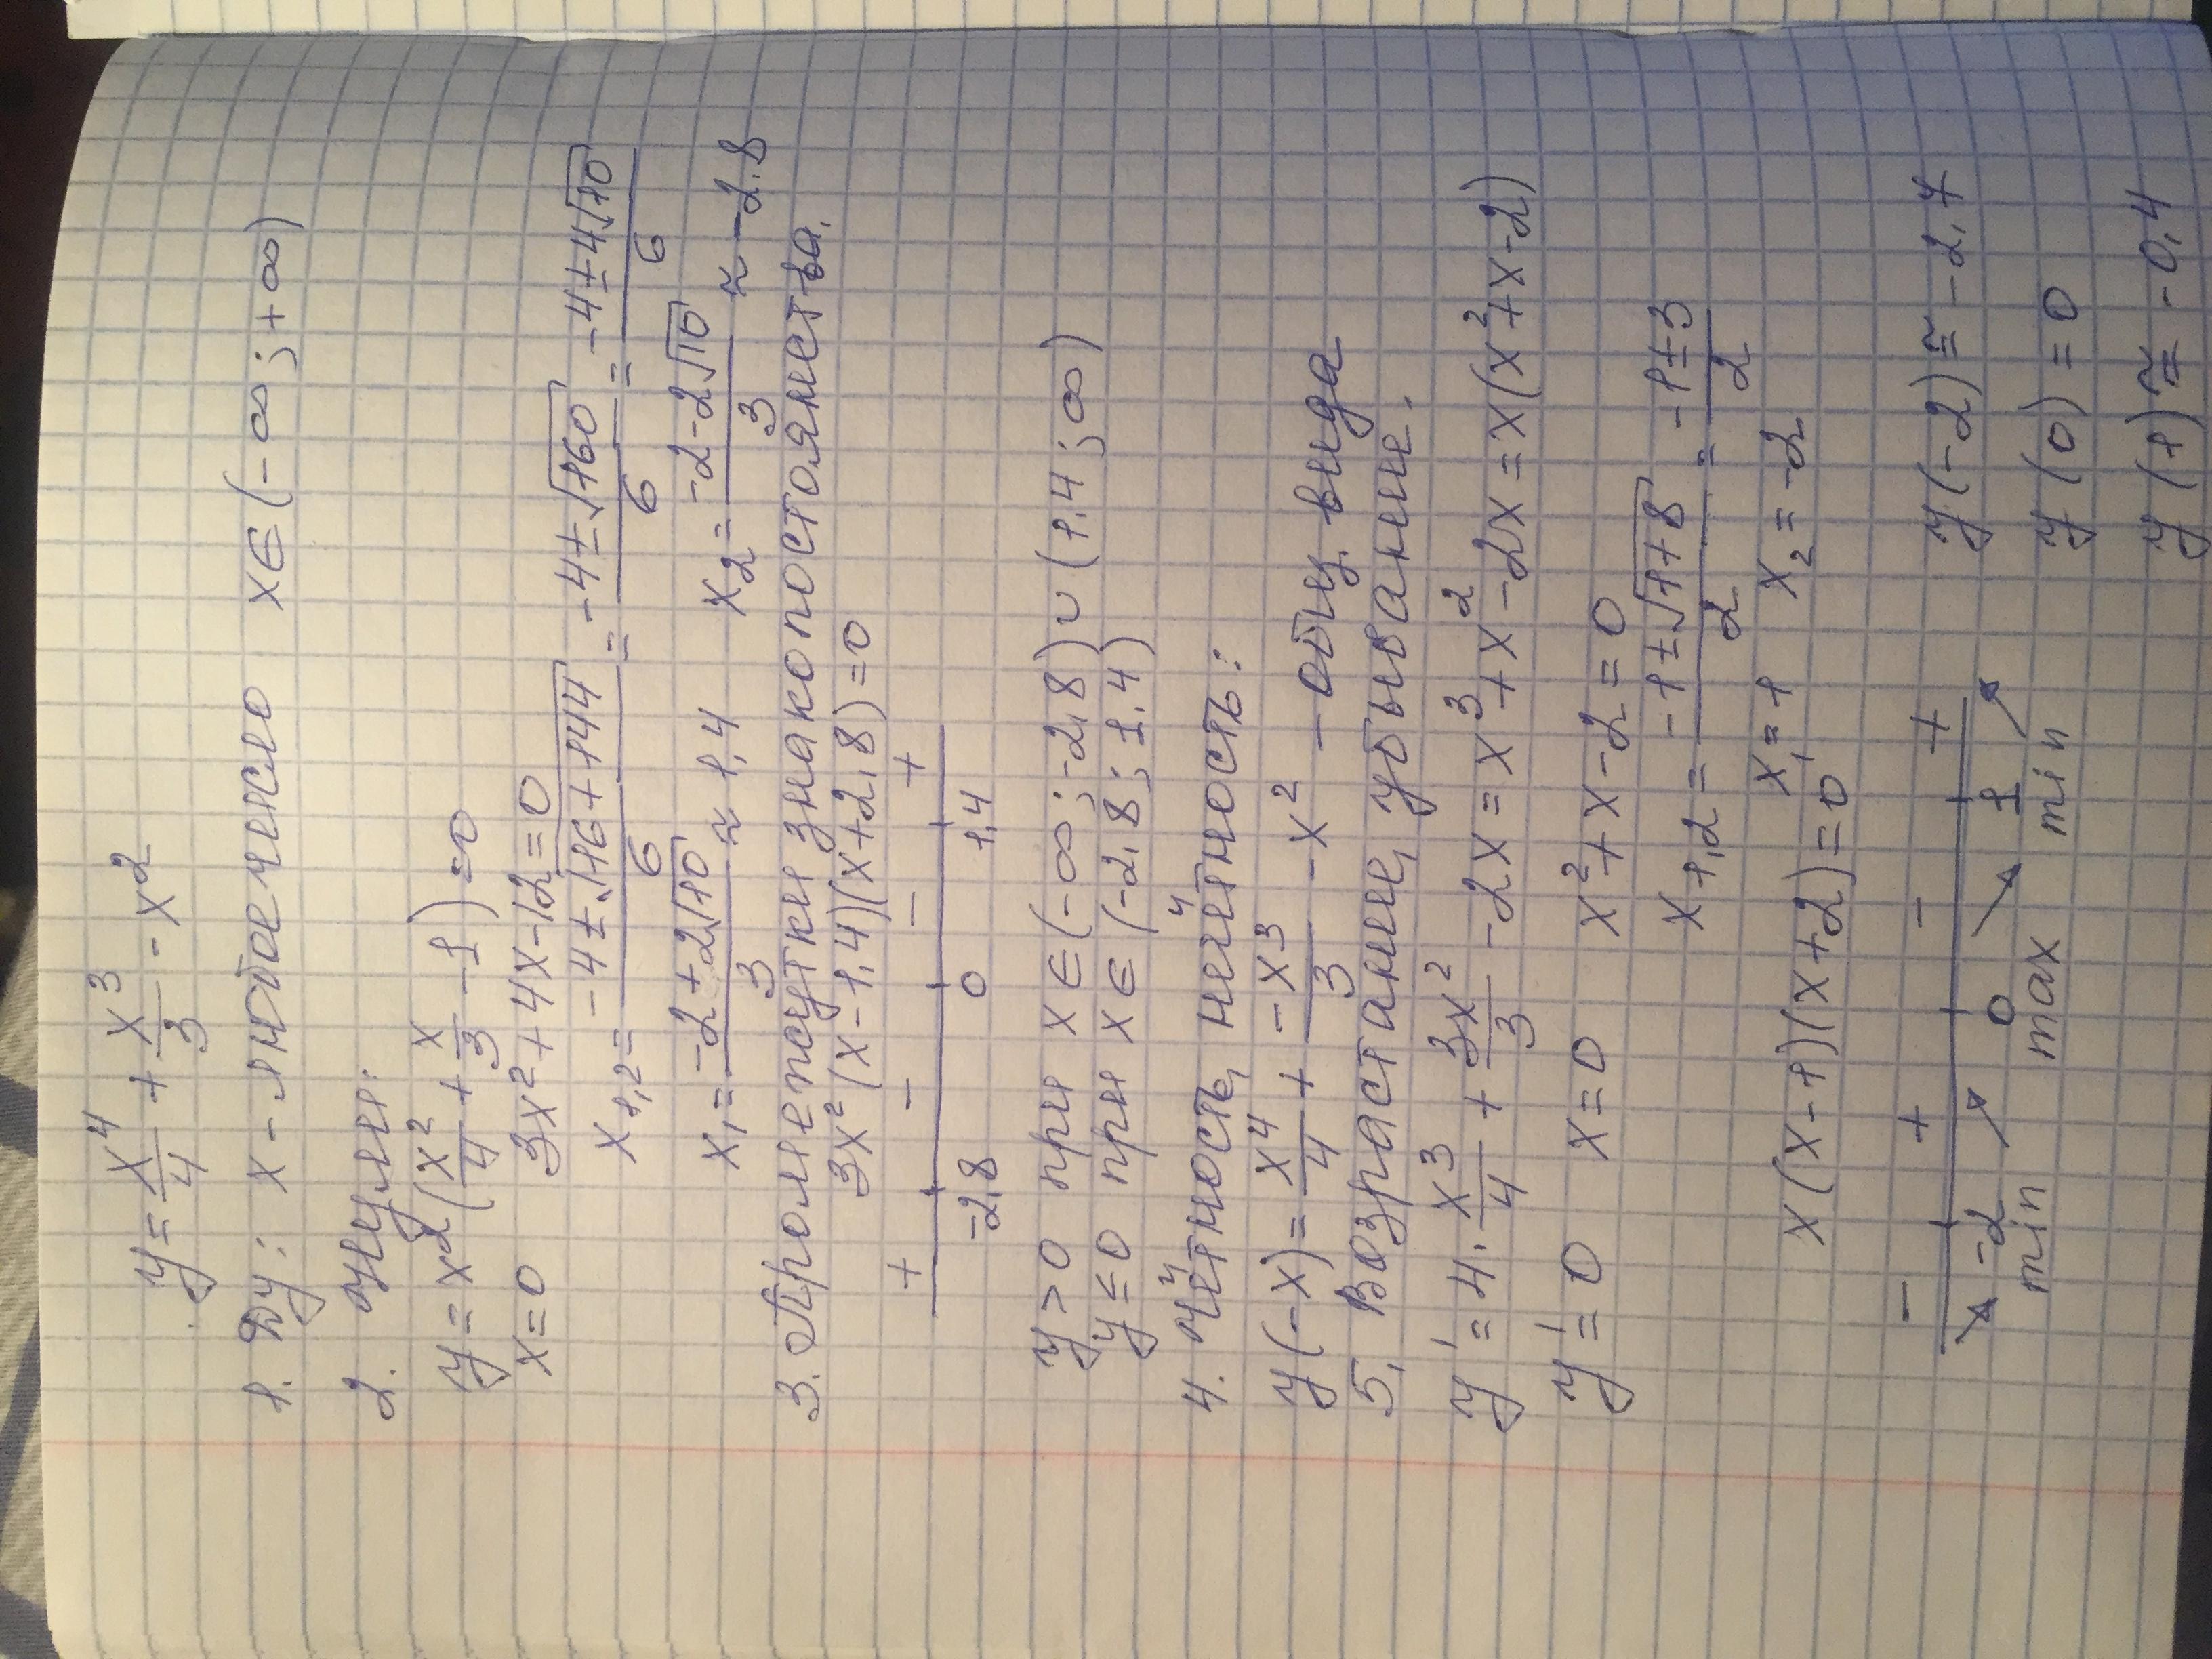 y = x⁴/4 + x³/3 - x²
1. Dy: x - любое число x ∈ (-∞; +∞)
2. Нули:
y = x²(x²/4 + x/3 - 1) = 0
x = 0 3x² + 4x - 12 = 0
x₁,₂ = (-4 ± √(16 + 144))/6 = (-4 ± √160)/6 = (-4 ± 4√10)/6
x₁ = (-2 + 2√10)/3 ≈ 1,4 x₂ = (-2 - 2√10)/3 ≈ -2.8
3. Промежутки знакопостоянства.
3x²(x - 1,4)(x + 2,8) = 0
+ - - +
-2,8 0 1,4
y > 0 при x ∈ (-∞; -2,8) ∪ (1,4; ∞)
y ≤ 0 при x ∈ (-2,8; 1.4)
4. Чётность, нечётность:
y(-x) = x⁴/4 + -x³/3 - x² - общ. вида
5. Возрастание, убывание.
y' = 4·x³/4 + 3x²/3 - 2x = x³ + x² - 2x = x(x² + x - 2)
y' = 0 x = 0 x² + x - 2 = 0
x₁,₂ = (-1 ± √(1 + 8))/2 = (-1 ± 3)/2
x₁ = 1 x₂ = -2
x(x - 1)(x + 2) = 0
- + - +
↘ -2 ↗ 0 ↘ 1 ↗
min max min
y(-2) ≅ -2,7
y(0) = 0
y(1) ≅ -0,4